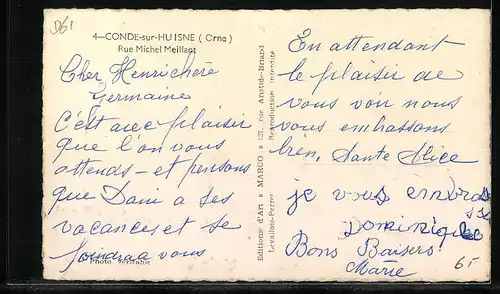 D61
4—CONDE-sur-HUISNE (Orne)
Rue Michel Meillant
Cher Henri chère
Germaine
C'est avec plaisir
que l'on vous
attends — et pensons
que Dani a ses
vacances et se
joindra a vous
Photo véritable
Editions d'Art « MARCO » 27, rue Aristide-Briand
Levallois-Perret Reproduction interdite
En attendant
le plaisir de
vous voir nous
vous embrassons
bien, Tante Alice
je vous embras
se
Dominique
Bons Baisers
Marie
65